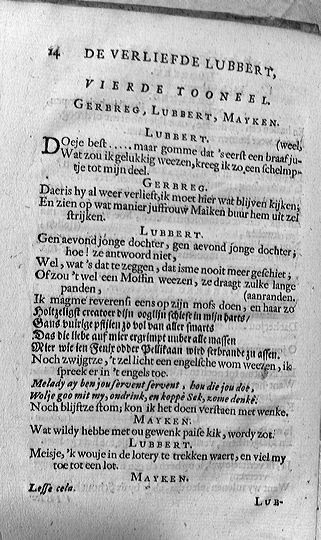 14 DE VERLIEFDE LUBBERT,
VIERDE TOONEEL.
GERBREG, LUBBERT, MAYKEN.
LUBBERT.
(weel,
DOeje best ..... maar gomme dat 's eerst een braaf ju-
Wat zou ik gelukkig weezen, kreeg ik zo, een schelmp-
tje tot mijn deel.
GERBREG.
Daer is hy al weer verlieft, ik moet hier wat blijven kijken;
En zien op wat manier juffrouw Maiken buur hem uit zel
strijken.
LUBBERT.
Gen aevond jonge dochter, gen aevond jonge dochter;
hoe! ze antwoord niet,
Wel, wat 's dat te zeggen, dat isme nooit meer geschiet;
Of zou 't wel een Moffin weezen, ze draagt zulke lange
panden, (aanranden.
Ik magme reverensi eens op zijn mofs doen, en haar zo
Holtzeligst creatoer dijn voglijn schiest in mijn harts
Gans vuirige pfijlen zo vol van aller smarts
Das die liebe auf mier ergrimpt unber alle massen
Mier wie ien Fenix odder Pellikaan wird ferbrandt zu assen.
Noch zwijgtze, 't zel licht een engelsche wom weezen, ik
spreek er in 't engels toe.
Melady ay ben jou servent servent, hou die jou doe,
Wolje goo mit my, ondrink, en koppe Sek, zome denke.
Noch blijftze stom; kon ik het doen verstaen met wenke.
MAYKEN.
Wat wildy hebbe met ou gewenk paise kik, wordy zot.
LUBBERT.
Meisje, 'k wouje in de lotery te trekken waert, en viel my
toe tot een lot.
MAYKEN.
Lesse cela.
LUB-